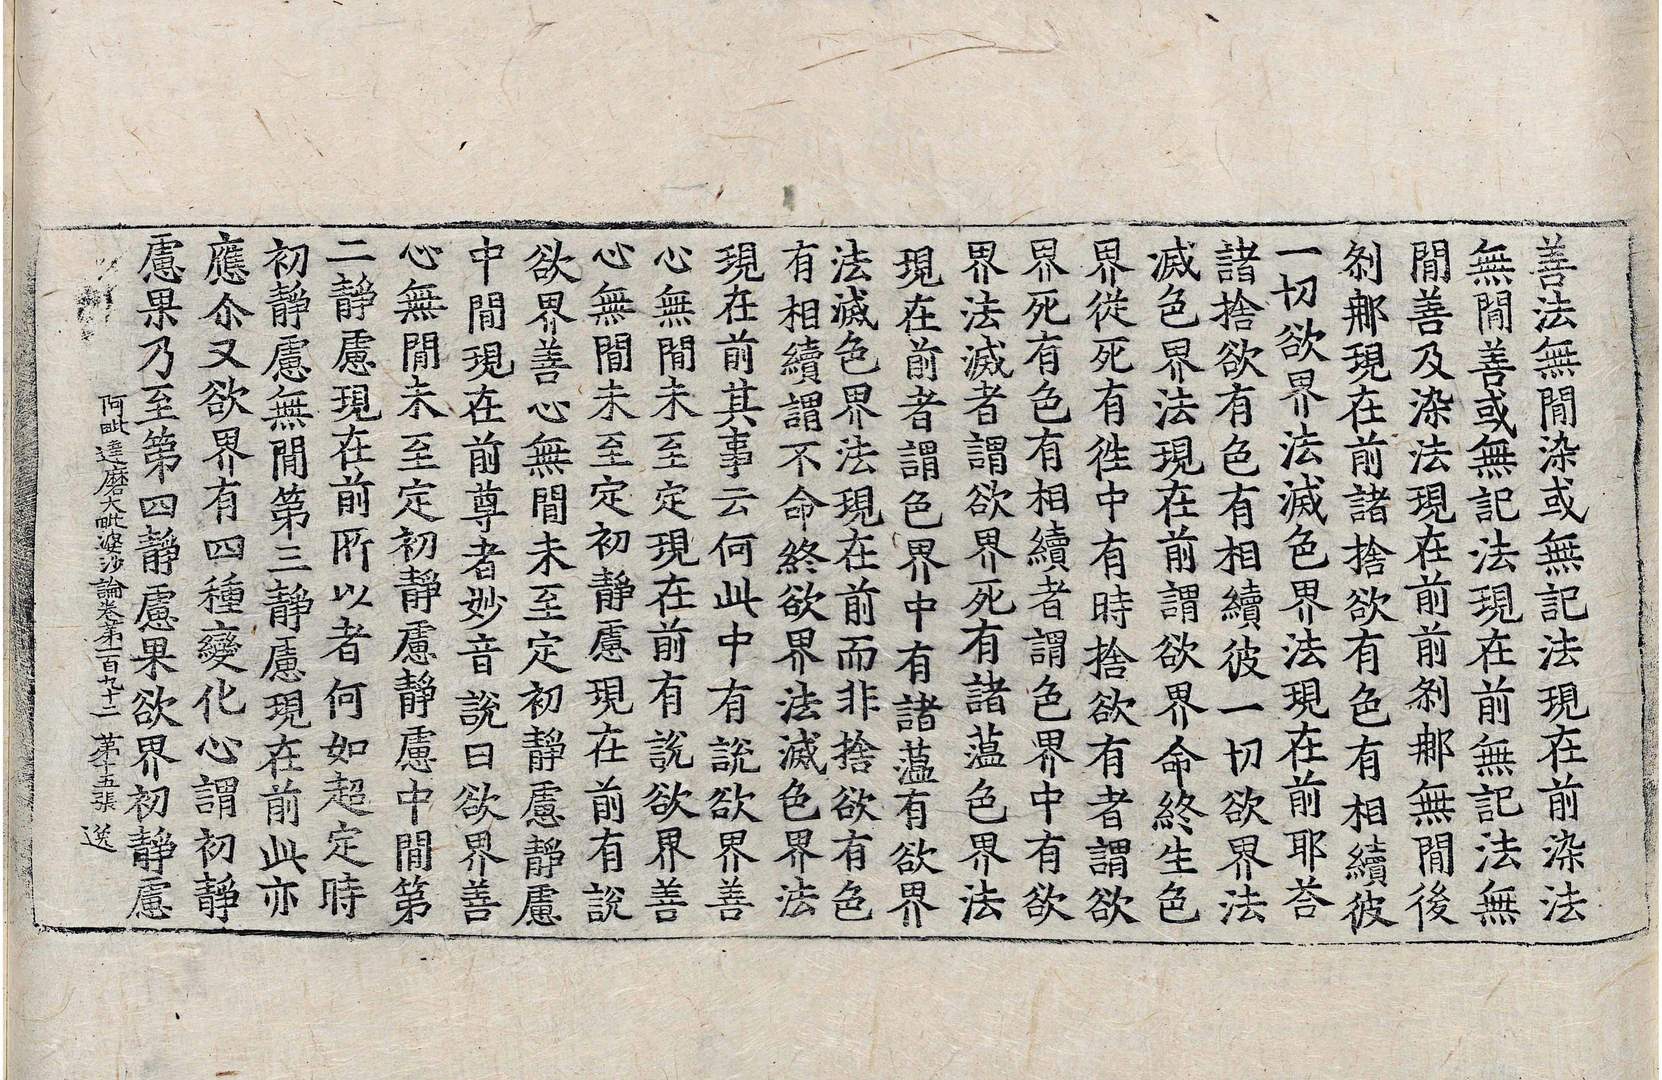 善法無閒染或無記法現在前染法
無閒善或無記法現在前無記法無
閒善及染法現在前前刹那無閒後
刹那現在前諸捨欲有色有相續彼
一切欲界法滅色界法現在前耶荅
諸捨欲有色有相續彼一切欲界法
滅色界法現在前謂欲界命終生色
界從死有徃中有時捨欲有者謂欲
界死有色有相續者謂色界中有欲
界法滅者謂欲界死有諸蕰色界法
現在前者謂色界中有諸蕰有欲界
法滅色界法現在前而非捨欲有色
有相續謂不命終欲界法滅色界法
現在前其事云何此中有說欲界善
心無閒未至定現在前有說欲界善
心無閒未至定初靜慮現在前有說
欲界善心無閒未至定初靜慮靜慮
中閒現在前尊者妙音說曰欲界善
心無閒未至定初靜慮靜慮中閒第
二靜慮現在前所以者何如超定時
初靜慮無閒第三靜慮現在前此亦
應尒又欲界有四種變化心謂初靜
慮果乃至第四靜慮果欲界初靜慮
阿毗達磨大毗婆沙論卷第一百九十二　第十五張　逸